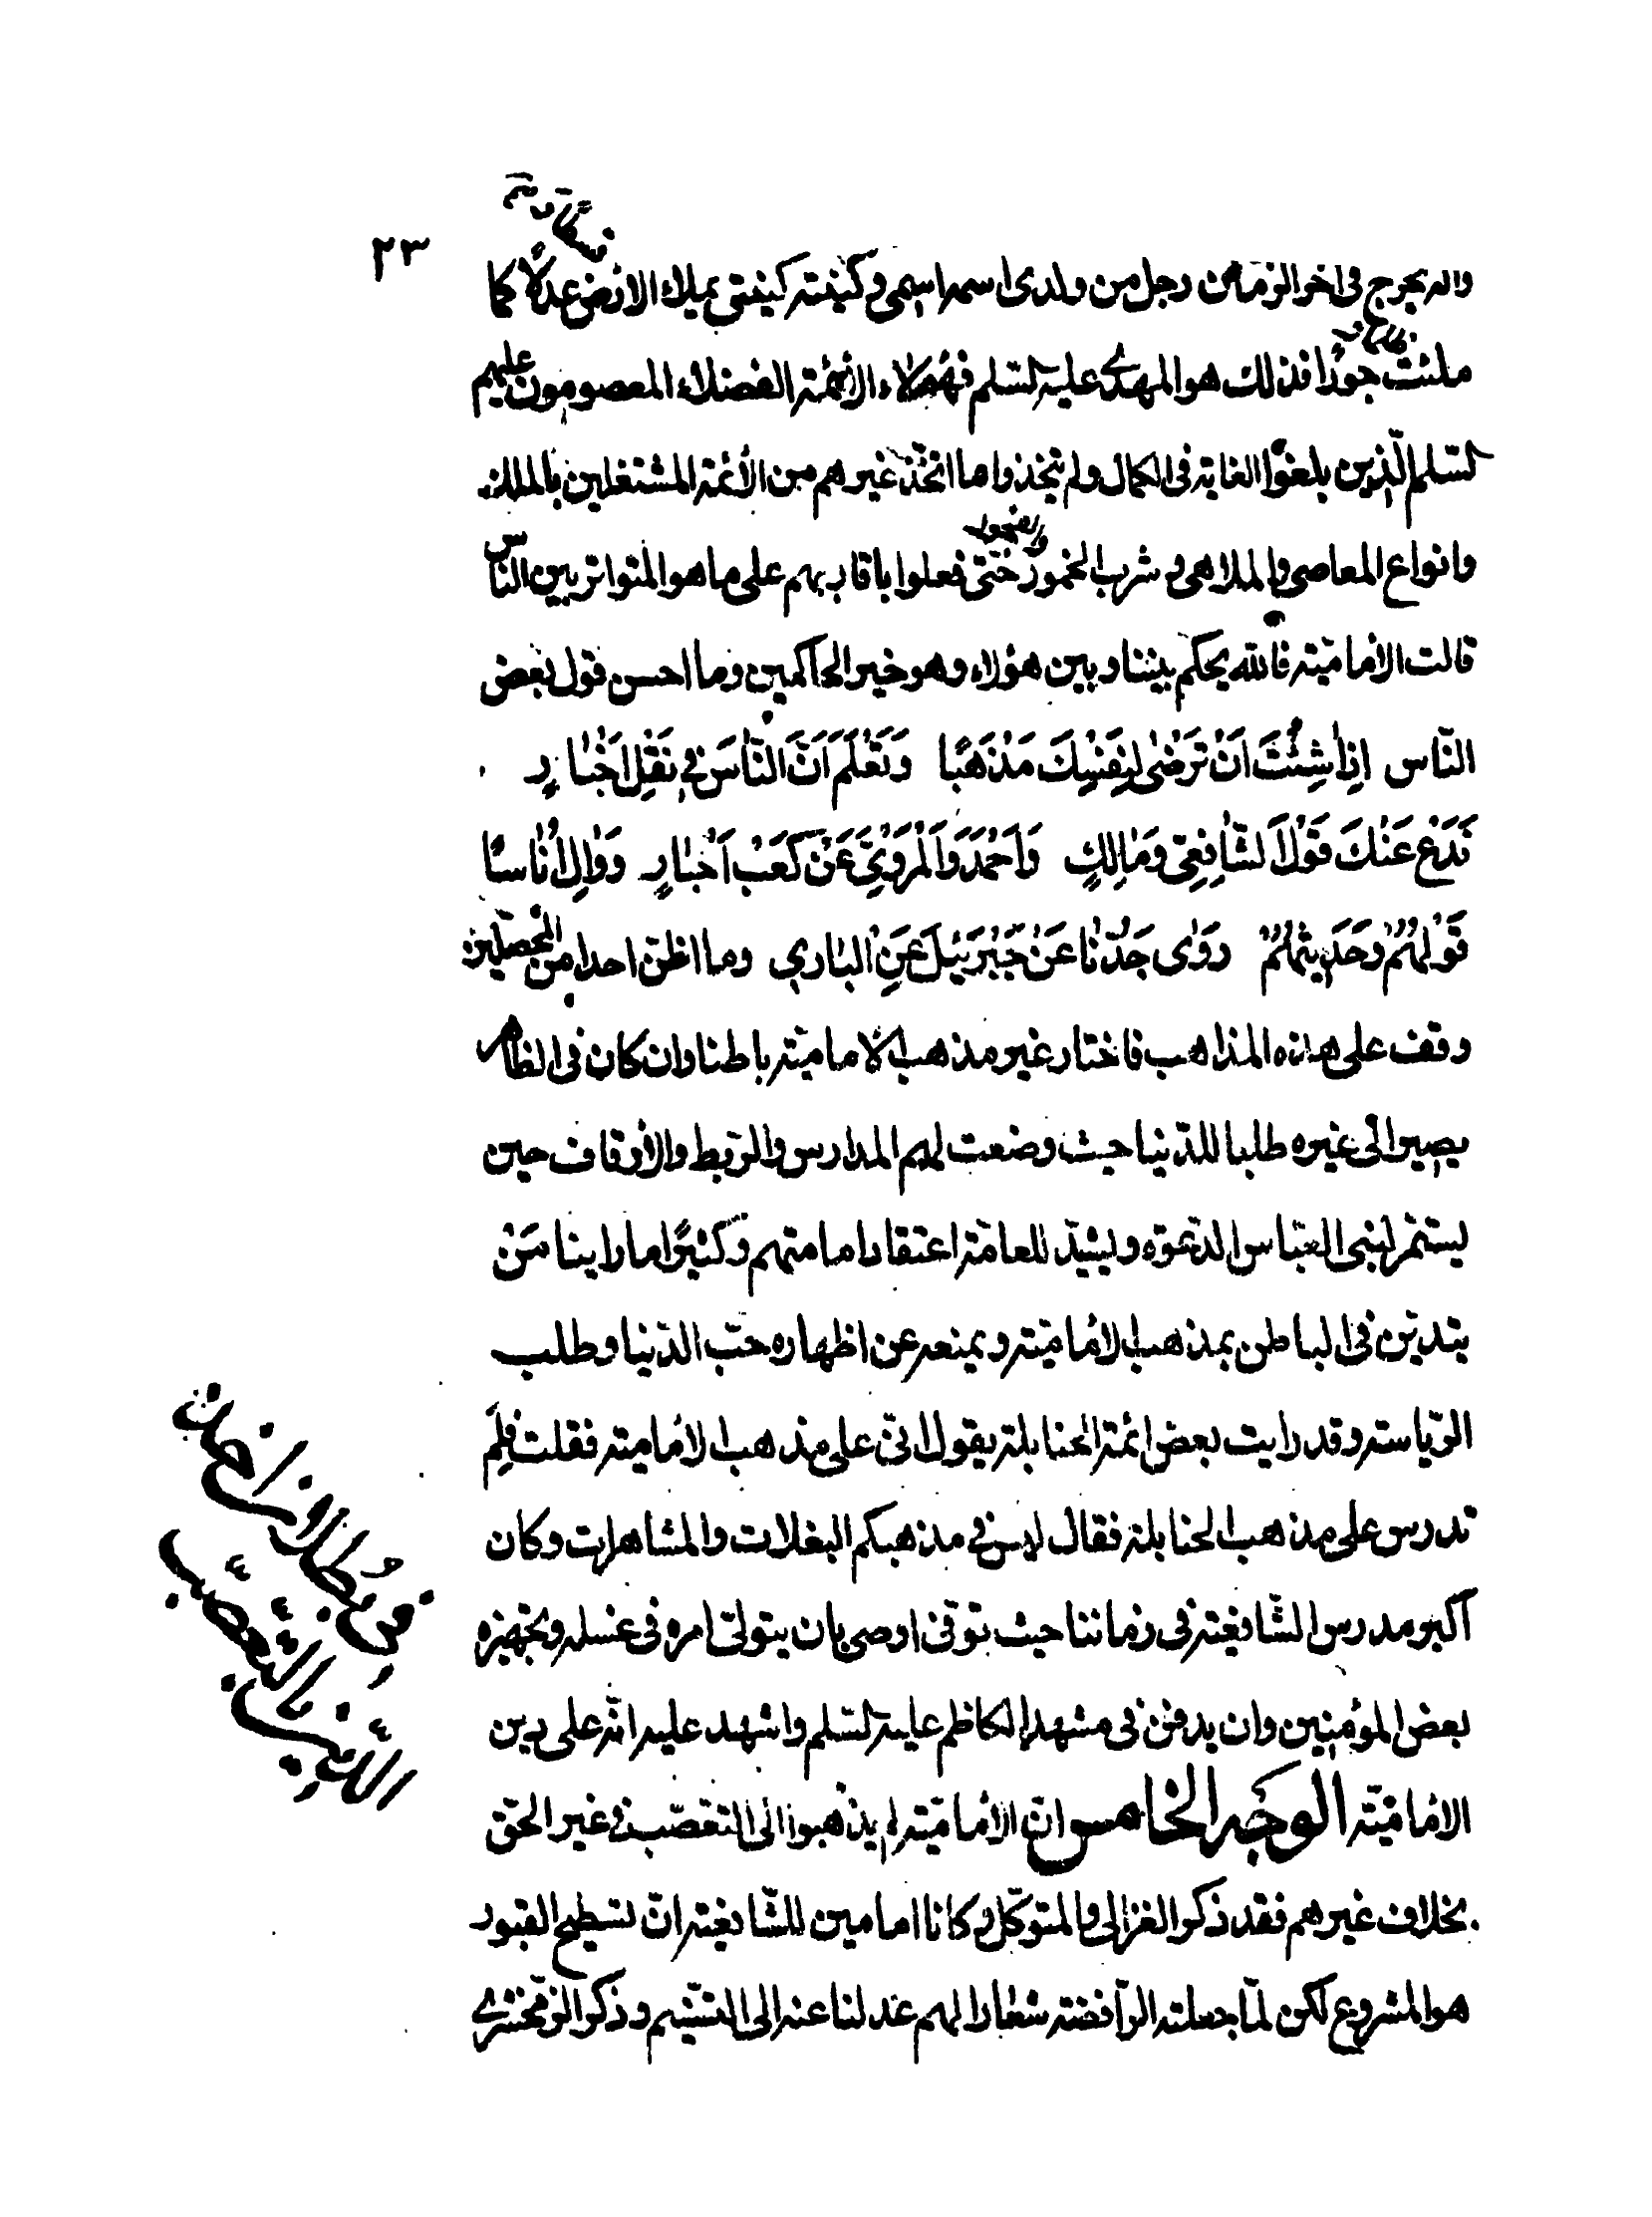 ٢٣
واله يخرج فى اخر الزمان رجل من ولدى اسمه اسمى وكنيته كنيتى يملاء الارض عدلا كما
ملئت جورا فذلك هو المهدى عليه السلم فهؤلاء الأئمة الفضلاء المعصومون عليهم
السلم الذين بلغوا الغاية فى الكمال ولم يتخذوا ما اتخذ غيرهم من الأئمة المشتغلين بالملك
وانواع المعاصى والملاهى و شرب الخمور حتى فعلوا باقاربهم على ما هو المتواتر بين الناس
قالت الامامية فالله يحكم بيننا وبين هؤلاء وهو خير الحاكمين وما احسن قول بعض
النّاس اِذا شِئْتَ اَنْ تَرْضٰى لِنَفْسِكَ مَذْهَبًا وَتَعْلَمَ اَنَّ النّاسَ فِى نَقْلِ اَخْبارِ
فَدَعْ عَنْكَ قَوْلَ الشّافِعِىّ وَمٰالِكٍ وَاَحْمَدَ وَالْمَرْوِىَّ عَنْ كَعْبِ اَحْبٰارِ وَوٰالِ اُنٰاسًا
قَوْلُهُمْ وَحَدِيثُهُمْ رَوٰى جَدُّنٰا عَنْ جَبْرَئِيلَ عَنِ الْبٰارِى وما اظن احدا من المحصلين
وقف على هذه المذاهب فاختار غير مذهب الامامية باطنا وان كان فى الظاهر
يصير الى غيره طلبا للدّنيا حيث وضعت لهم المدارس والربط والاوقاف حين
يستمر لبنى العباس الدعوة ويشيد للعامة اعتقاد امامتهم وكثيرًا ما راينا مَنْ
يتدين فى الباطن بمذهب الامامية ويمنعه عن اظهاره حبّ الدّنيا وطلب
الرّياسة وقد رايت بعض ائمة الحنابلة يقول انى على مذهب الامامية فقلت فلِمَ
تدرس على مذهب الحنابلة فقال ليس فى مذهبكم البغلات والمشاهرات وكان
اكبر مدرس الشّافعية فى زماننا حيث توفى اوصى بان يتولى امره فى غسله وتجهيزه
بعض المؤمنين وان يدفن فى مشهد الكاظم عليه السلم واشهد عليه انّه على دين
الاماميّة الوجه الخامس انّ الاماميّة لم يذهبوا الى التعصّب فى غير الحق
بخلاف غيرهم فقد ذكر الغزالى والمتوكّل وكانا امامين للشّافعية انّ تسطيح القبور
هو المشروع لكن لمّا جعلته الرّافضة شعارا لهم عدلنا عنه الى التسنيم وذكر الزمخشرى